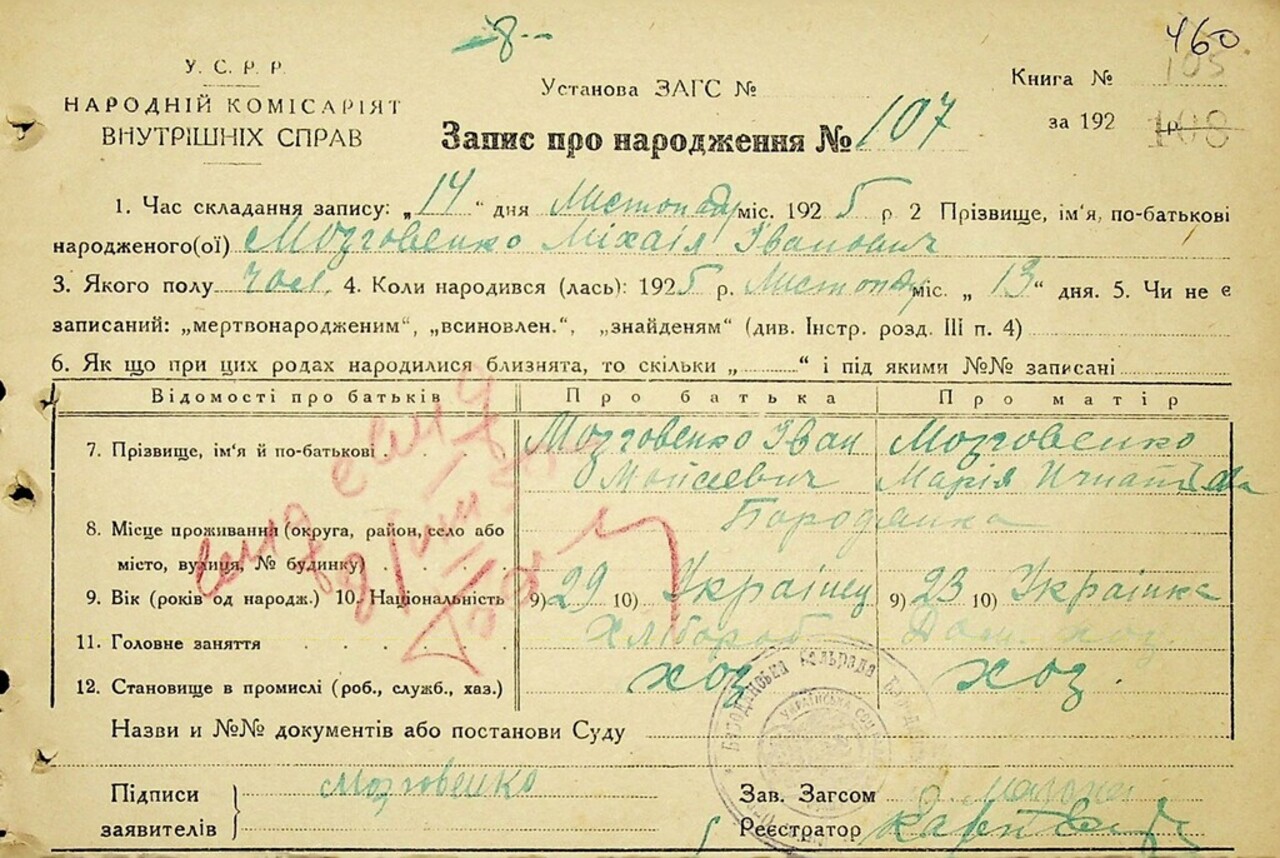 -8--
460
105
У. С. Р. Р.
НАРОДНІЙ КОМІСАРІЯТ
ВНУТРІШНІХ СПРАВ
Установа ЗАГС №
Книга №
за 192 р. 108
Запис про народження № 107
1. Час складання запису: „14“ дня Листопаду міс. 1925 р 2 Прізвище, ім'я, по-батькові
народженого(ої) Мозговенко Міхаіл Іванович
3. Якого полу чол. 4. Коли народився (лась): 1925 р. Листопаду міс. „13“ дня. 5. Чи не є
записаний: „мертвонародженим“, „всиновлен.“, „знайденям“ (див. Інстр. розд. III п. 4)
6. Як що при цих родах народилися близнята, то скільки „ “ і під якими №№ записані
Відомості про батьків Про батька Про матір
7. Прізвище, ім'я й по-батькові Мозговенко Іван Мозговенко
Мойсеевич Марія
8. Місце проживання (округа, район, село або Бородянка
місто, вулиця, № будинку)
9. Вік (років од народж.) 10. Національність 9) 29 10) Украінец 9) 23 10) Украінка
11. Головне заняття Хлібороб Дом. хоз.
12. Становище в промислі (роб., служб., хаз.) хоз хоз.
Назви и №№ документів або постанови Суду
Підписи Мозговенко Зав. Загсом
заявителів Реєстратор